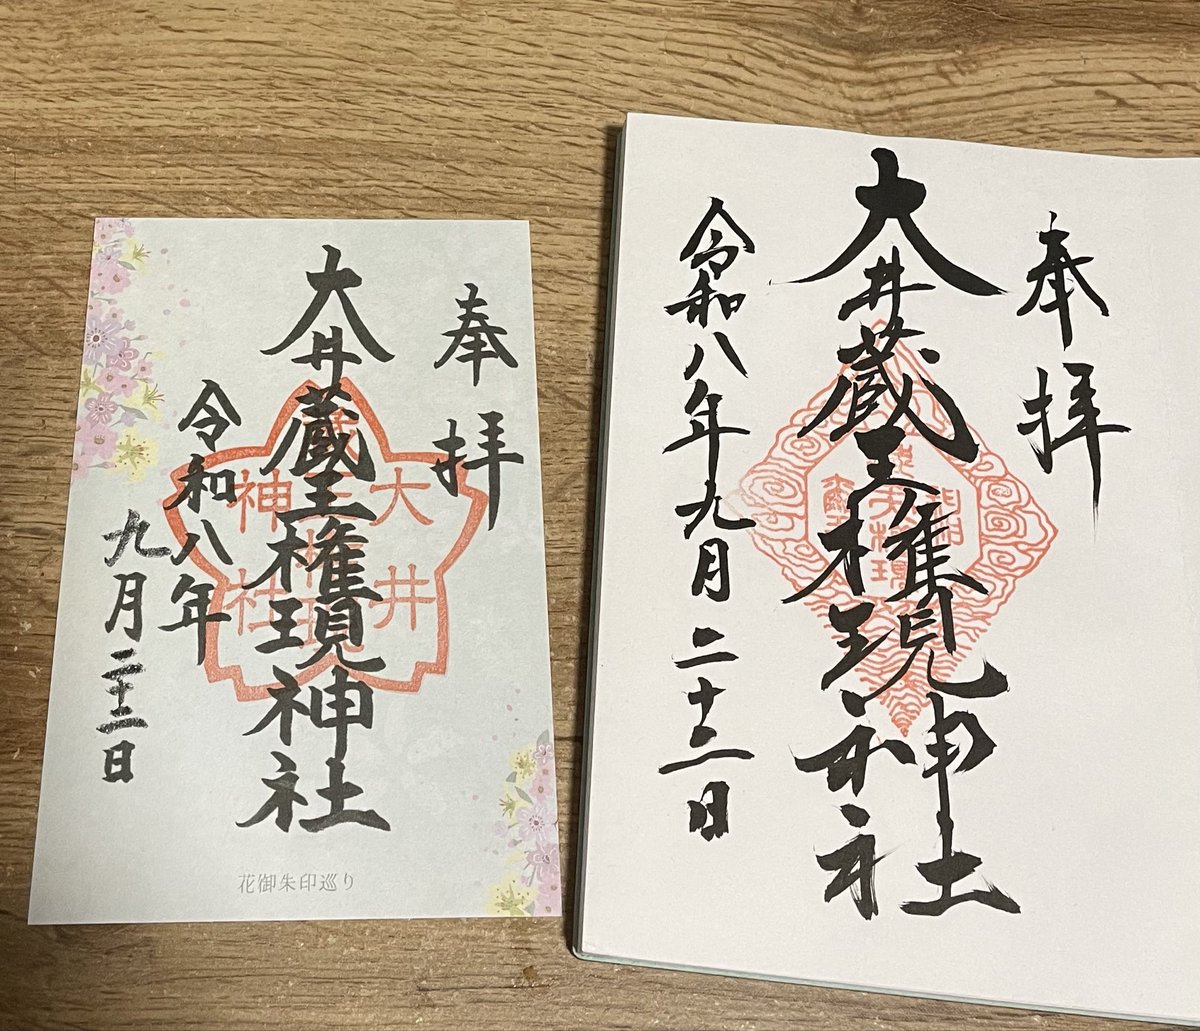 奉拝
大井蔵王権現神社
大井
蔵王権現
神社
令和八年
九月二十三日
花御朱印巡り
奉拝
大井蔵王権現神社
令和八年九月二十三日